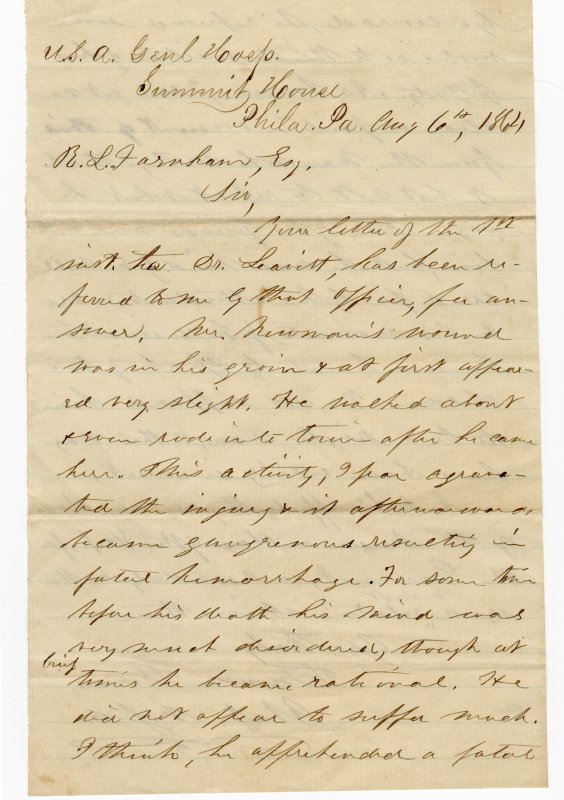 U.S.A. Genl Hosp.
Summit House
Phila. Pa. Aug 6th, 1864
R. L. Farnham, Esq.
Sir,
Your letter of the 1st
inst. to Dr. Leavitt, has been re-
ferred to me by that Officer, for an-
swer. Mr. Newman's wound
was in his groin & at first appear-
ed very slight. He walked about
& even rode into town after he came
here. This activity, I fear agrava-
ted the injury & it afterwards
became gangrenous resulting in
fatal hemorrhage. For some time
before his death his mind was
very much disordered, though at
brief
times he became rational. He
did not appear to suffer much.
I think, he apprehended a fatal